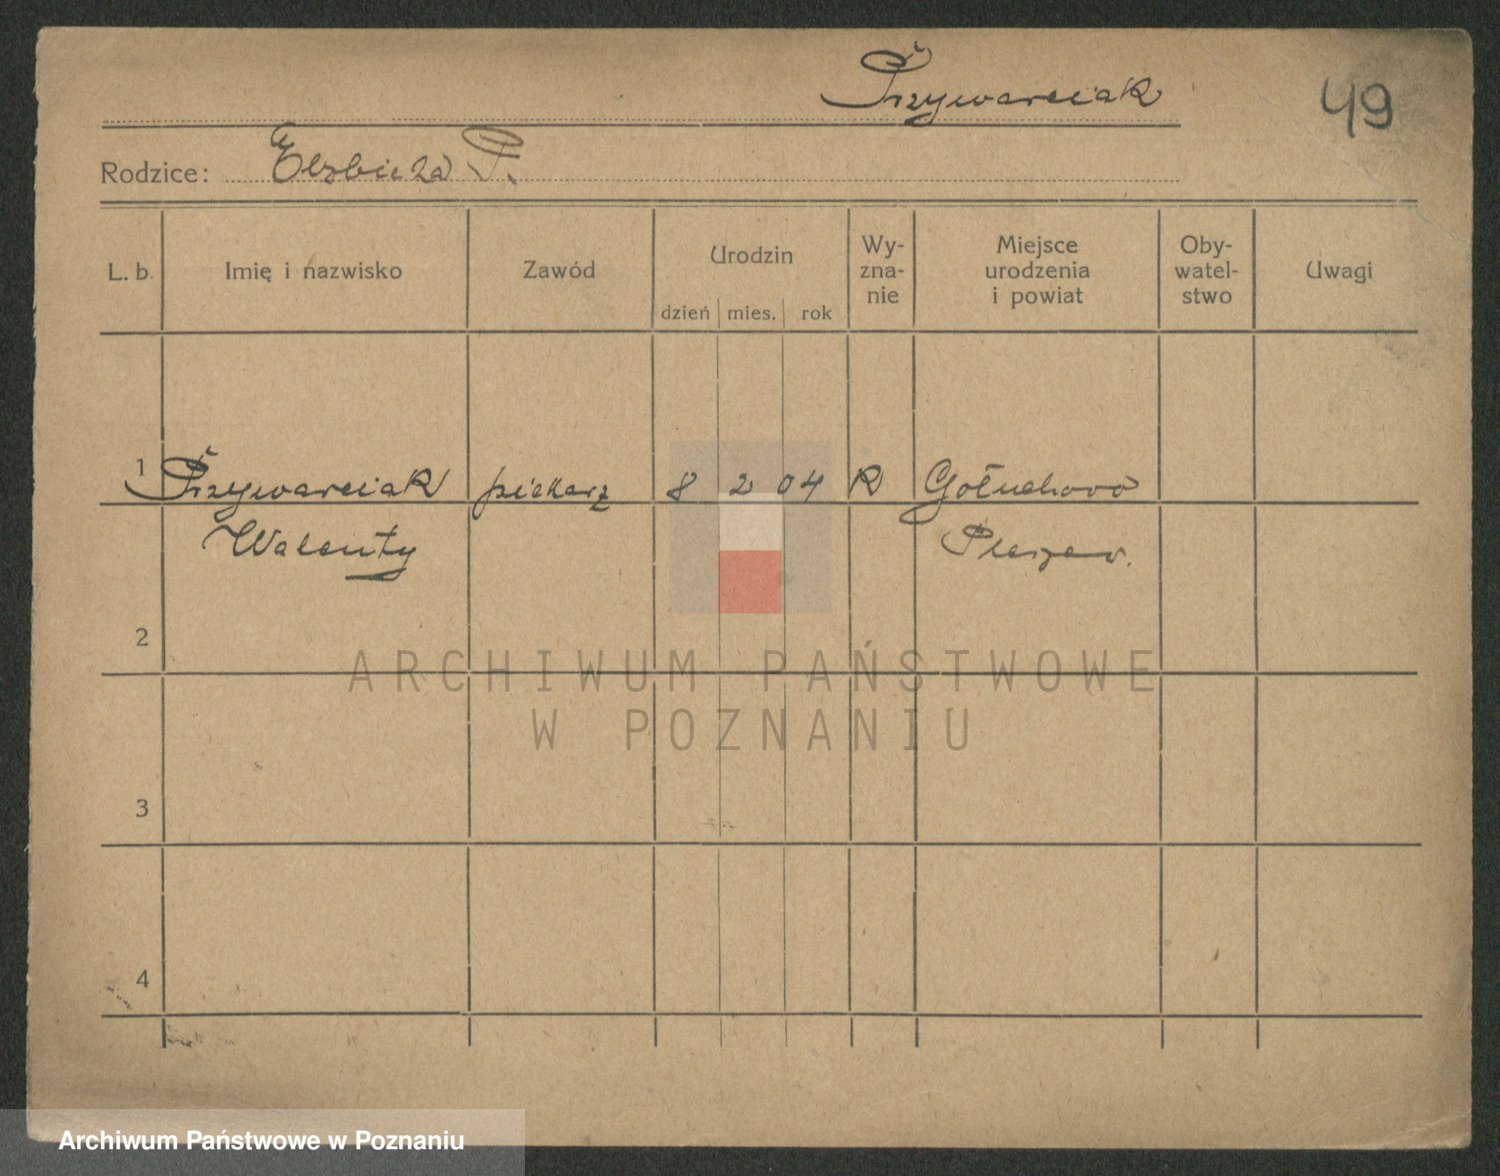 Przywarciak
49
Rodzice: Elżbieta P.
L. b. Imię i nazwisko Zawód Urodzin dzień mies. rok Wy-zna-nie Miejsce urodzenia i powiat Oby-watel-stwo Uwagi
1 Przywarciak piekarz 8 2 04 R Gołuchowo
Walenty Pleszew.
2
ARCHIWUM PAŃSTWOWE
W POZNANIU
3
4
Archiwum Państwowe w Poznaniu